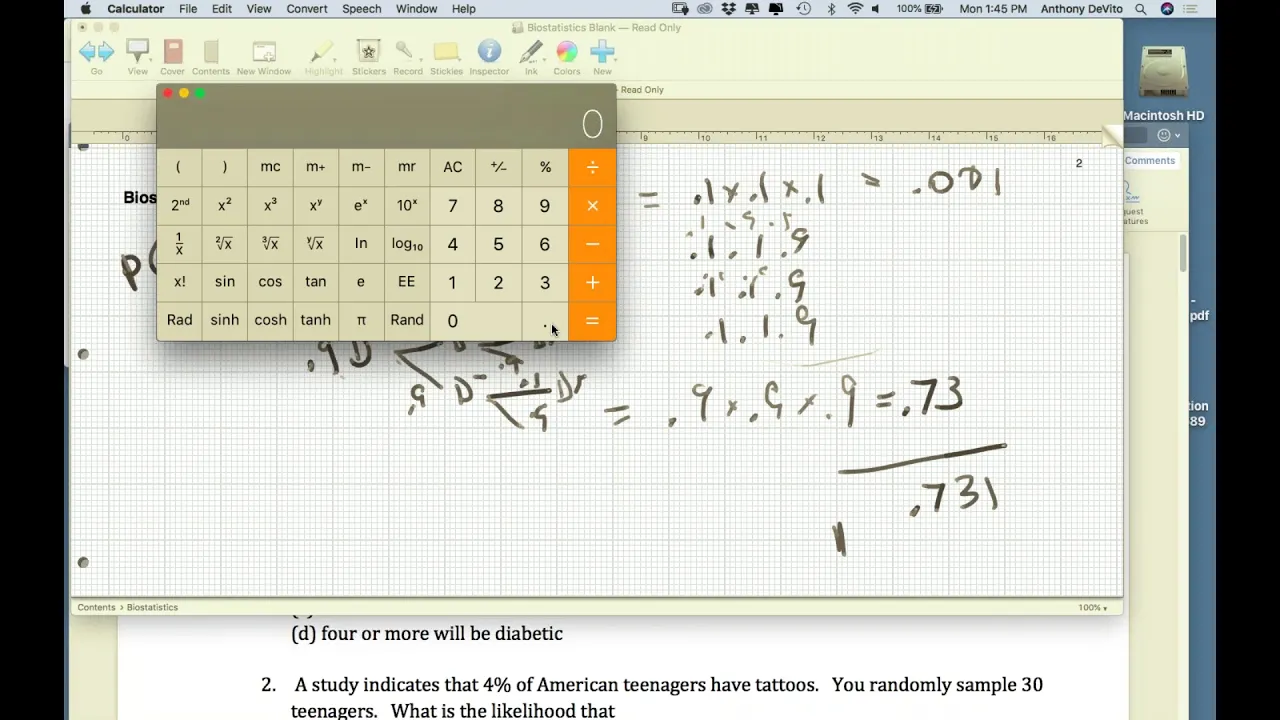 Calculator File Edit View Convert Speech Window Help 100% Mon 1:45 PM Anthony DeVito
Biostatistics Blank — Read Only
Go View Cover Contents New Window Highlight Stickers Record Stickies Inspector Ink Colors New
- Read Only
Macintosh HD
0
0 9 10 11 12 13 14 15 16
Comments
2
( ) mc m+ m− mr AC +/− % ÷
2nd x² x³ xʸ eˣ 10ˣ 7 8 9 ×
1/x ²√x ³√x ʸ√x ln log₁₀ 4 5 6 −
x! sin cos tan e EE 1 2 3 +
Rad sinh cosh tanh π Rand 0 . =
Bios
= .1 x .1 x .1 = .001
.1 .1 .9
.1 .1 .9
.1 .1 .9
P(
.9 D
.9 D .1 D
.9 = .9 x .9 x .9 = .73
.731
1
quest
atures
pdf
tion
-89
Contents > Biostatistics 100%
(d) four or more will be diabetic
2. A study indicates that 4% of American teenagers have tattoos. You randomly sample 30
teenagers. What is the likelihood that